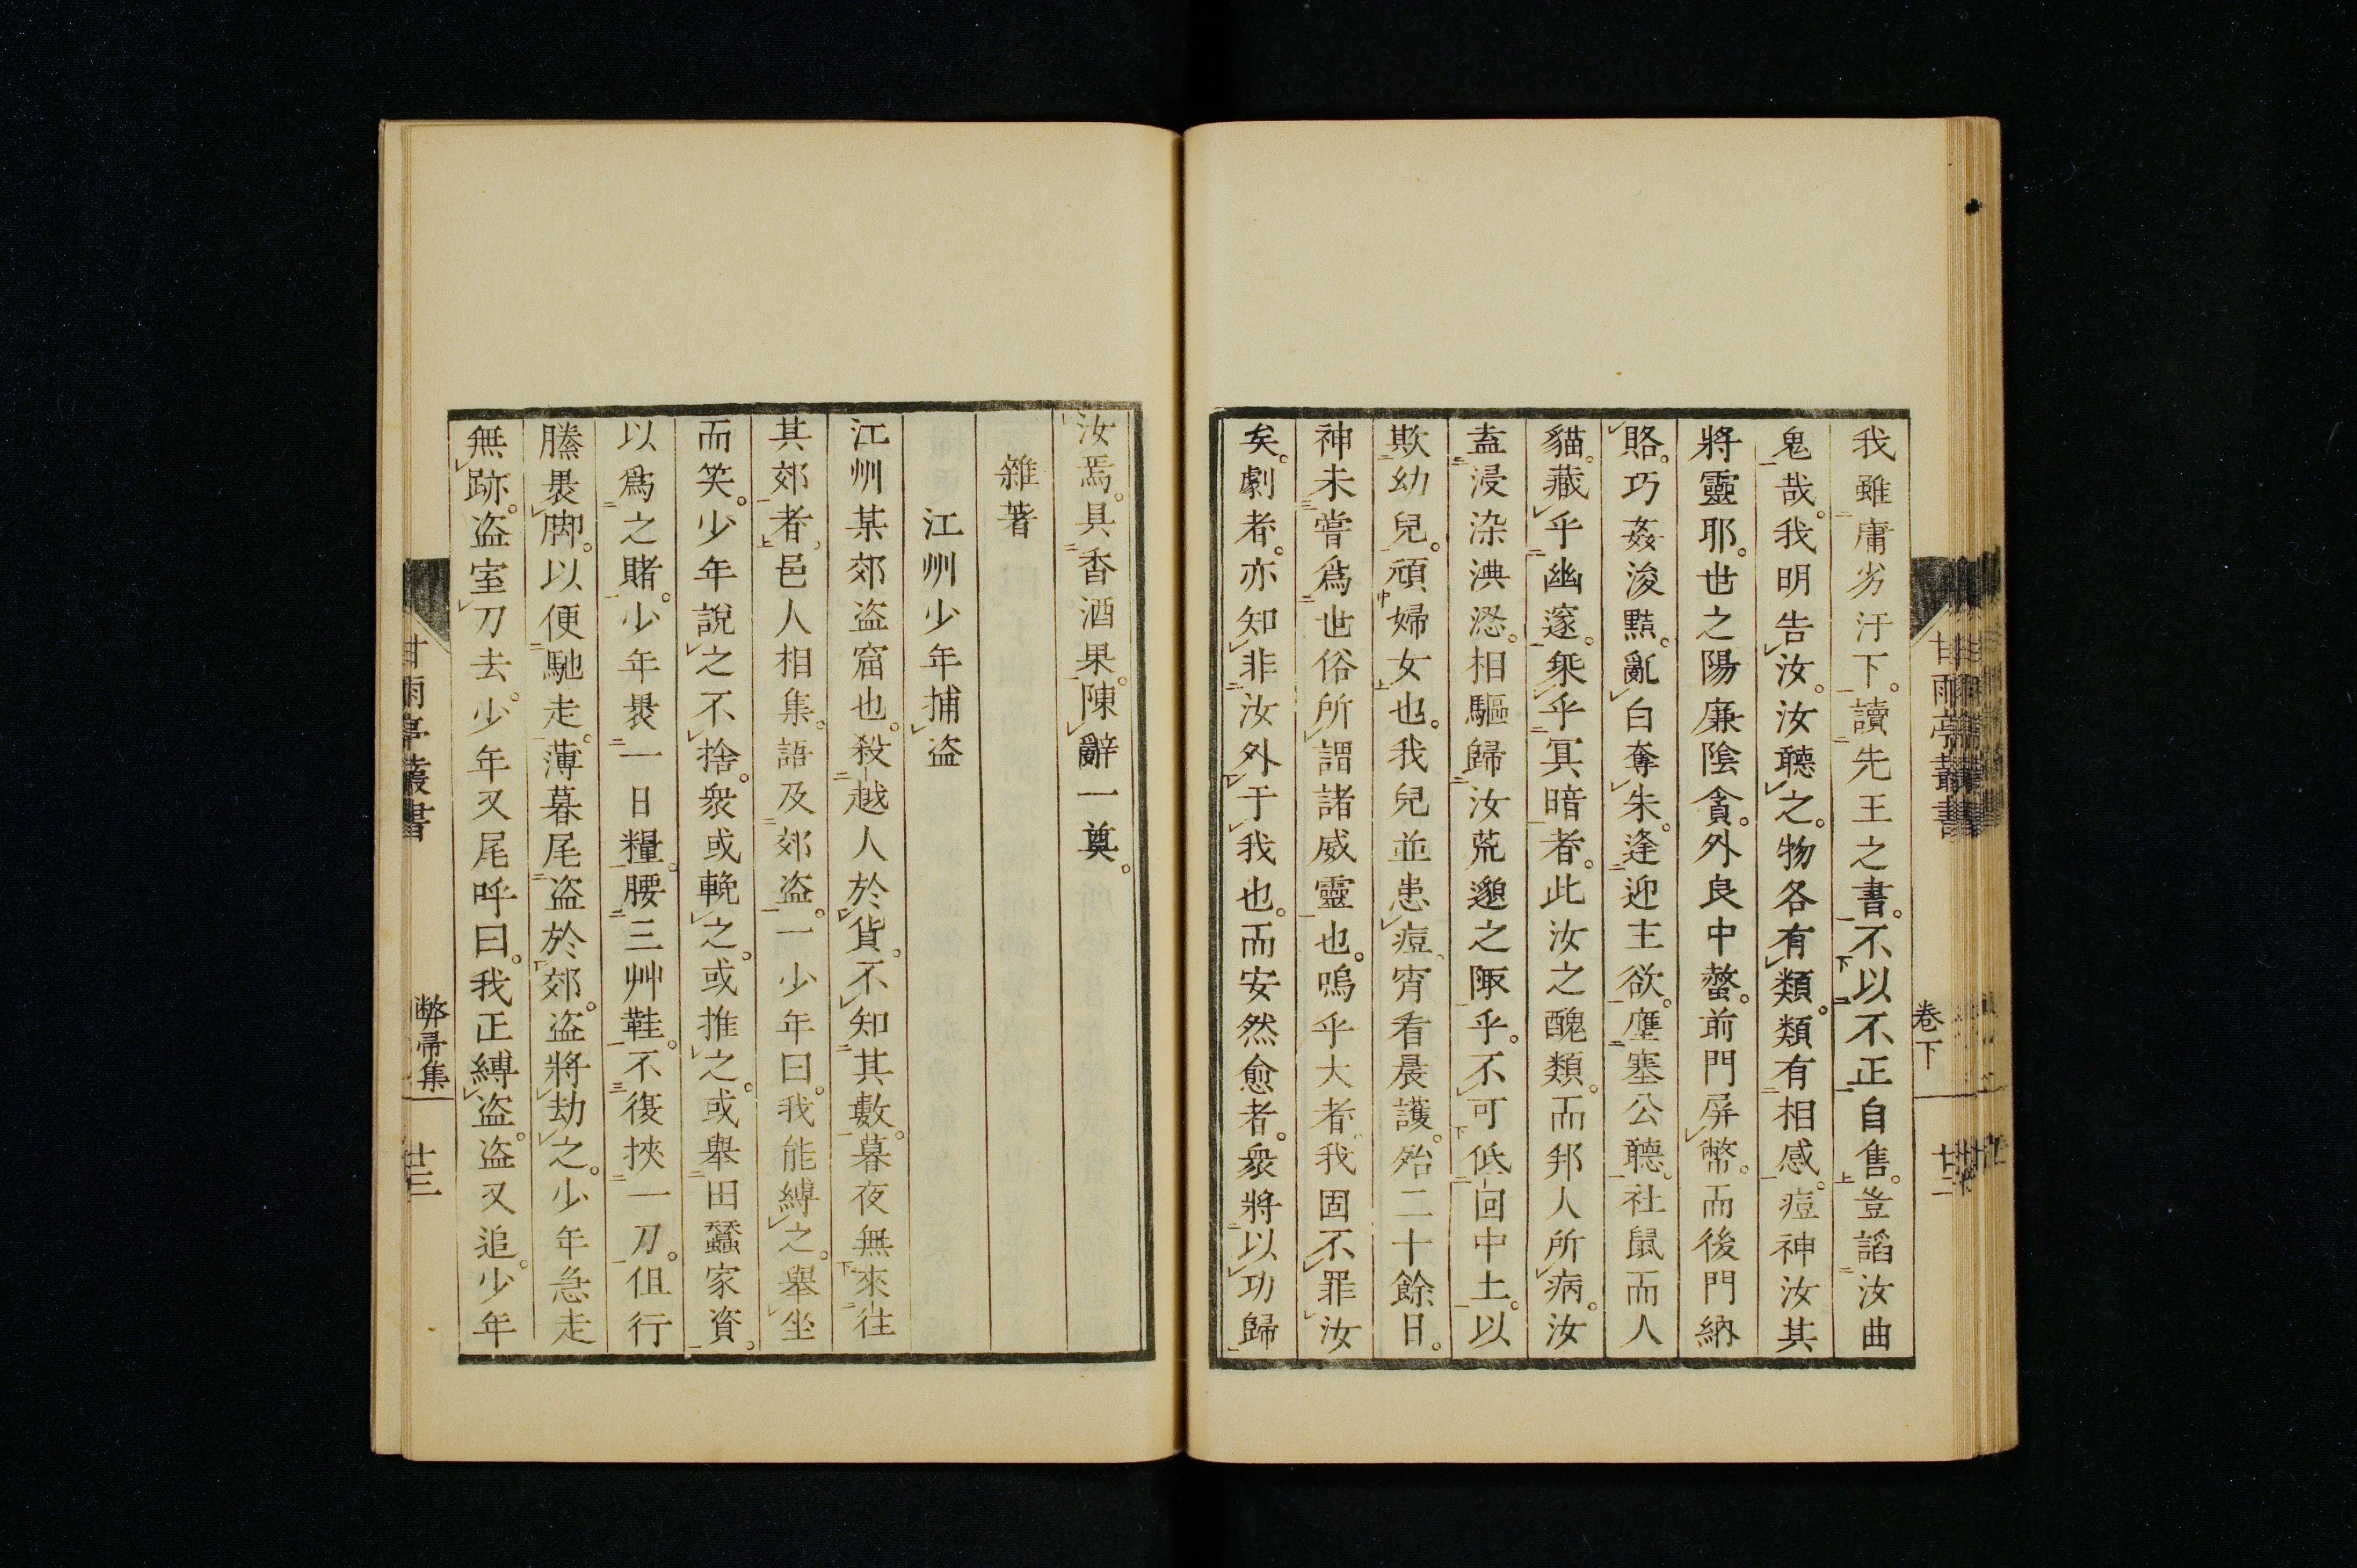 我雖庸劣汙下。讀先王之書。不以不正自售。豈諂汝曲
鬼哉。我明告汝。汝聽之。物各有類。類有相感。痘神汝其
將靈耶。世之陽廉陰貪。外良中螫。前門屏幣。而後門納
賂。巧姦浚黠。亂白奪朱。逢迎主欲。壅塞公聽。社鼠而人
貓。藏乎幽邃。乘乎冥暗者。此汝之醜類。而邦人所病。汝
盍浸染淟涊。相驅歸汝荒邈之陬乎。不可低回中土。以
欺幼兒。頑婦女也。我兒並患痘。宵看晨護。殆二十餘日。
神未嘗爲世俗所謂諸威靈也。嗚乎大者。我固不罪汝
矣。劇者。亦知非汝外于我也。而安然愈者。衆將以功歸
甘雨亭叢書
卷下
廿二
汝焉。具香酒果。陳辭一奠。
雜著
江州少年捕盗
江州某郊盗窟也。殺越人於貨。不知其數。暮夜無來往
其郊者。邑人相集。語及郊盗。一少年曰。我能縛之。舉坐
而笑。少年說之不捨。衆或輓之。或推之。或舉田蠶家資。
以爲之賭。少年褁一日糧。腰三艸鞋。不復挾一刀。伹行
縢褁脚。以便馳走。薄暮尾盗於郊。盗將劫之。少年急走
無跡。盗室刀去。少年又尾呼曰。我正縛盗。盗又追。少年
甘雨亭叢書
弊帚集
廿三